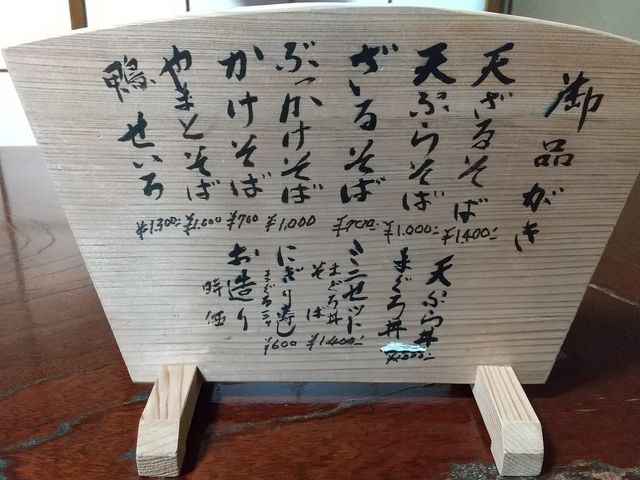 御品がき
天ざるそば ¥1,400-
天ぷらそば ¥1,000-
ざるそば
ぶっかけそば ¥1,000
かけそば ¥700
やまとそば ¥1,000
鴨せいろ ¥1,300-
天ぷら丼
まぐろ丼
ミニセット
まぐろ丼
そば ¥1,400-
にぎり寿し
¥600
お造り
時価